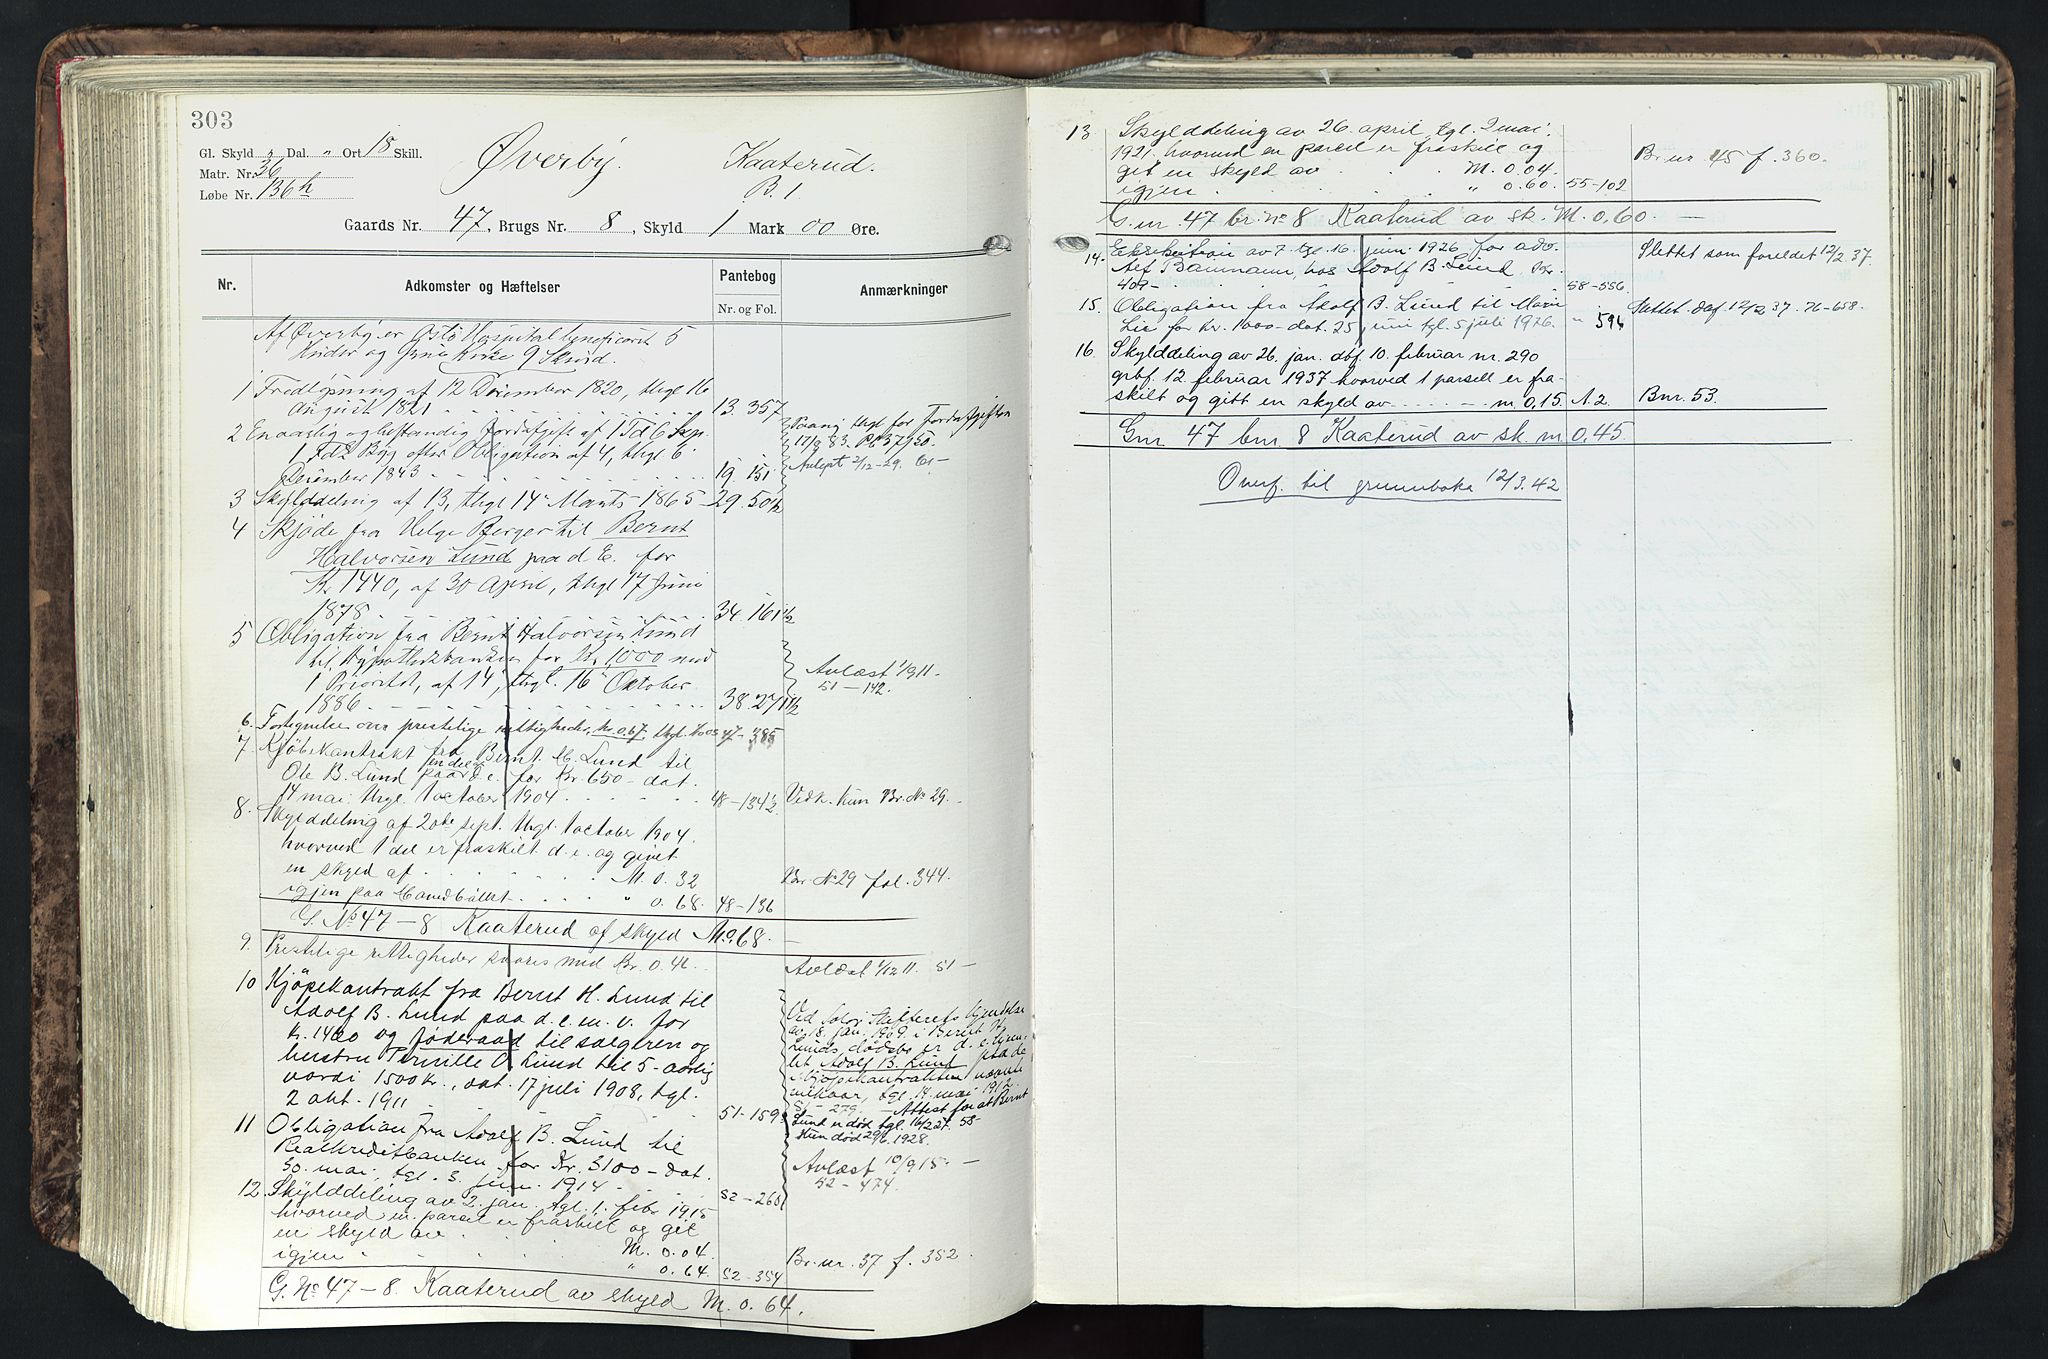 303
Gl. Skyld „ Dal. „ Ort 18 Skill.
Matr. Nr. 36
Løbe Nr. 136h
Øverby.
Kaaterud.
B. 1
Gaards Nr. 47, Brugs Nr. 8, Skyld 1 Mark 00 Øre.
Nr.
Adkomster og Hæftelser
Pantebog
Nr. og Fol.
Anmærkninger
Af Øverby er Oslo Hospital beneficeret 5
Huder og 9 Skind.
1 Fredlysning af 12 December 1820, thgl 16
august 1821 13. 357
2 En aarlig og bestandig Jordafgift af 1 Td 6 Skp.
1 Fdk Byg efter Obligation af 4, thgl 6
December 1843 19. 151
Paang thgl for Jordafgiften
17/9 83. Pb 37/50.
Avløst 2/12-29. 61-
3 Skylddeling af 13, thgl 14 Marts 1865 29. 50½
4 Skjøde fra Helge Berger til Bernt
Halvorsen Lund paa d E. for
Kr 1440, af 30 April, thgl 17 Juni
1878 34. 161½
5 Obligation fra Bernt Halvorsen Lund
til Hypothekbanken for Kr. 1000 med
1 Prioritet, af 14, thgl. 16 Oktober
1886 38. 271½
Avlæst 1/9 11.
51-142.
6. Fortegnelse over prestelige rettigheder, Kr. 0.67, thgl. 47-385
7. Kjøbekontrakt fra Bernt H. Lund til
Ole B. Lund paa en del d. e. for Kr. 650- dat.
14 mai thgl. 1 october 1904 48-134½
Vedk. kun Br. No 29.
8. Skylddeling af 20de sept. thgl. 1 october 1904
hvorved 1 del er fraskilt d. e. og givet
en skyld af M. 0. 32
igjen paa Hovedbøllet „ 0. 68. 48-136
Br No 29 fol. 344.
G. No 47-8 Kaaterud af skyld M 0. 68.
9. Prestelige rettigheder svares med Kr. 0.46.
Avlæst 1/12 11. 51-
10 Kjøpekontrakt fra Bernt H. Lund til
Adolf B. Lund paa d. e. m. v. for
Kr. 1400 og føderaad til sælgeren og
hustru Pernille O. Lund til 5-aarlig
værdi 1500 Kr., dat. 17 juli 1908, tgl.
2 okt. 1911 51-159
Ved Solør Skifterets kjendelse
av 18. jan. 1909 i Bernt H.
Lunds dødsbo er d. e. hjem-
let Adolf B. Lund paa de
i kjøpekontrakten nævnte
vilkaar, tgl. 14. mai 1912.
51-279. - Attest for at Bernt
Lund er død tgl. 16/2 27. 58-
Hun død 29/6. 1928.
11 Obligation fra Adolf B. Lund til
Realkreditbanken for Kr. 3100- dat.
30. mai, tgl. 3. juni 1914 52-260
Avlæst 10/9 15-
52-474.
12. Skylddeling av 2. jan. tgl. 1. febr 1915
hvorved en parcel er fraskilt og git
en skyld av M. 0. 04.
igjen „ 0. 64. 52-354
Br. nr. 37 f. 352.
G. No 47-8. Kaaterud av skyld M. 0. 64.
13 Skylddeling av 26. april, tgl. 2 mai
1921. hvorved en parcel er fraskilt og
git en skyld av M. 0.04.
igjen „ 0.60. 55-102
Br. nr. 45 f. 360.
G. nr. 47 br. no 8 Kaaterud av sk. M. 0,60.
14. Eksekution av 7. tgl. 16. juni 1926 for adv.
Alf Baumann hos Adolf B. Lund Kr.
409- 58-556.
Slettet som foreldet 12/2. 37.
15. Obligation fra Adolf B. Lund til Marie
Lie for kr. 1000- dat. 25 juni tgl. 5 juli 1926. „ 594
Slettet daf. 12/2 37. 76-658.
16. Skylddeling av 26. jan. dbf. 10. februar nr. 290
grbf. 12. februar 1937 hvorved 1 parsell er fra-
skilt og gitt en skyld av m. 0,15. A. 2.
Bnr. 53.
Gnr 47 bnr 8 Kaaterud av sk. m. 0,45.
Overf. til grunnboka 12/3. 42